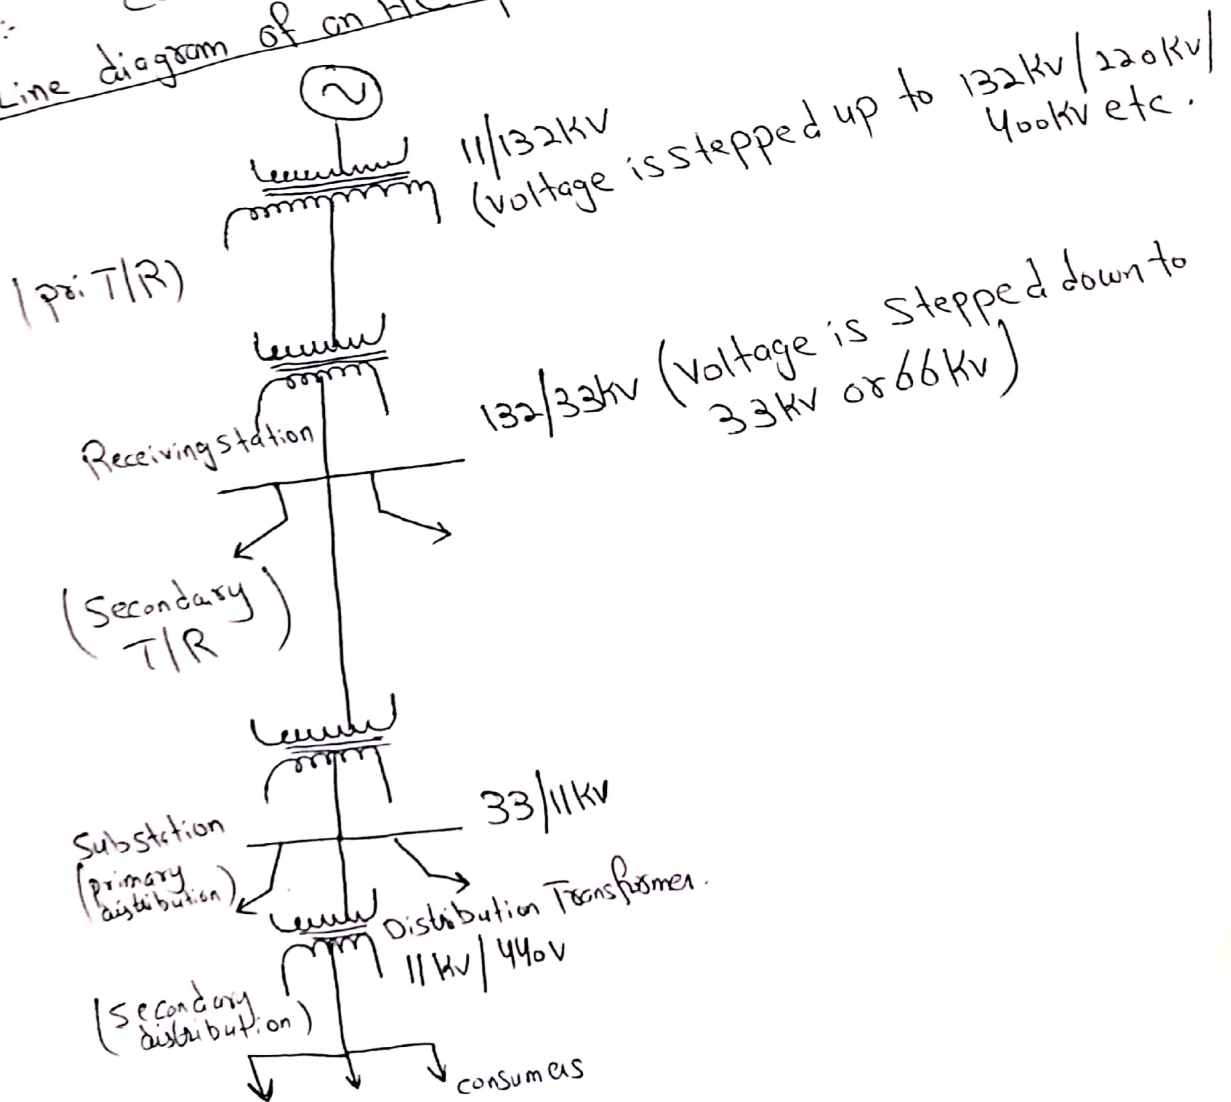 Line diagram of an
~
11/132KV
(voltage is stepped up to 132KV/220KV/
400KV etc.
(pri T/R)
132/33KV (voltage is stepped down to
33KV or 66KV)
Receiving station
(Secondary
T/R)
33/11KV
Substation
(primary
distribution)
Distribution Transformer.
11KV/440V
(Secondary
distribution)
consumers